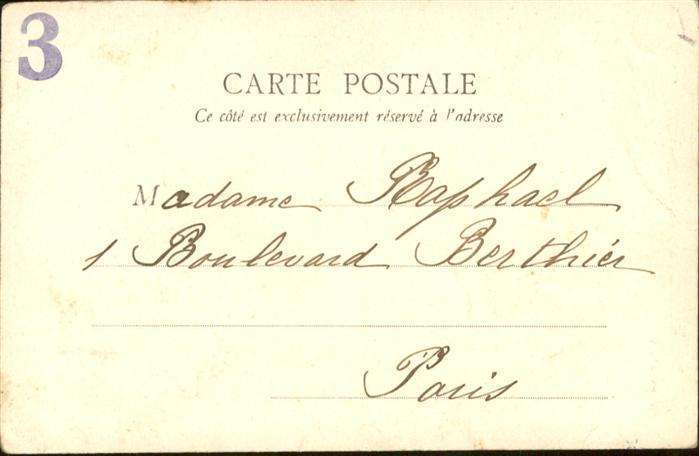 3
CARTE POSTALE
Ce côté est exclusivement réservé à l'adresse
Madame Raphael
1 Boulevard Berthier
Paris